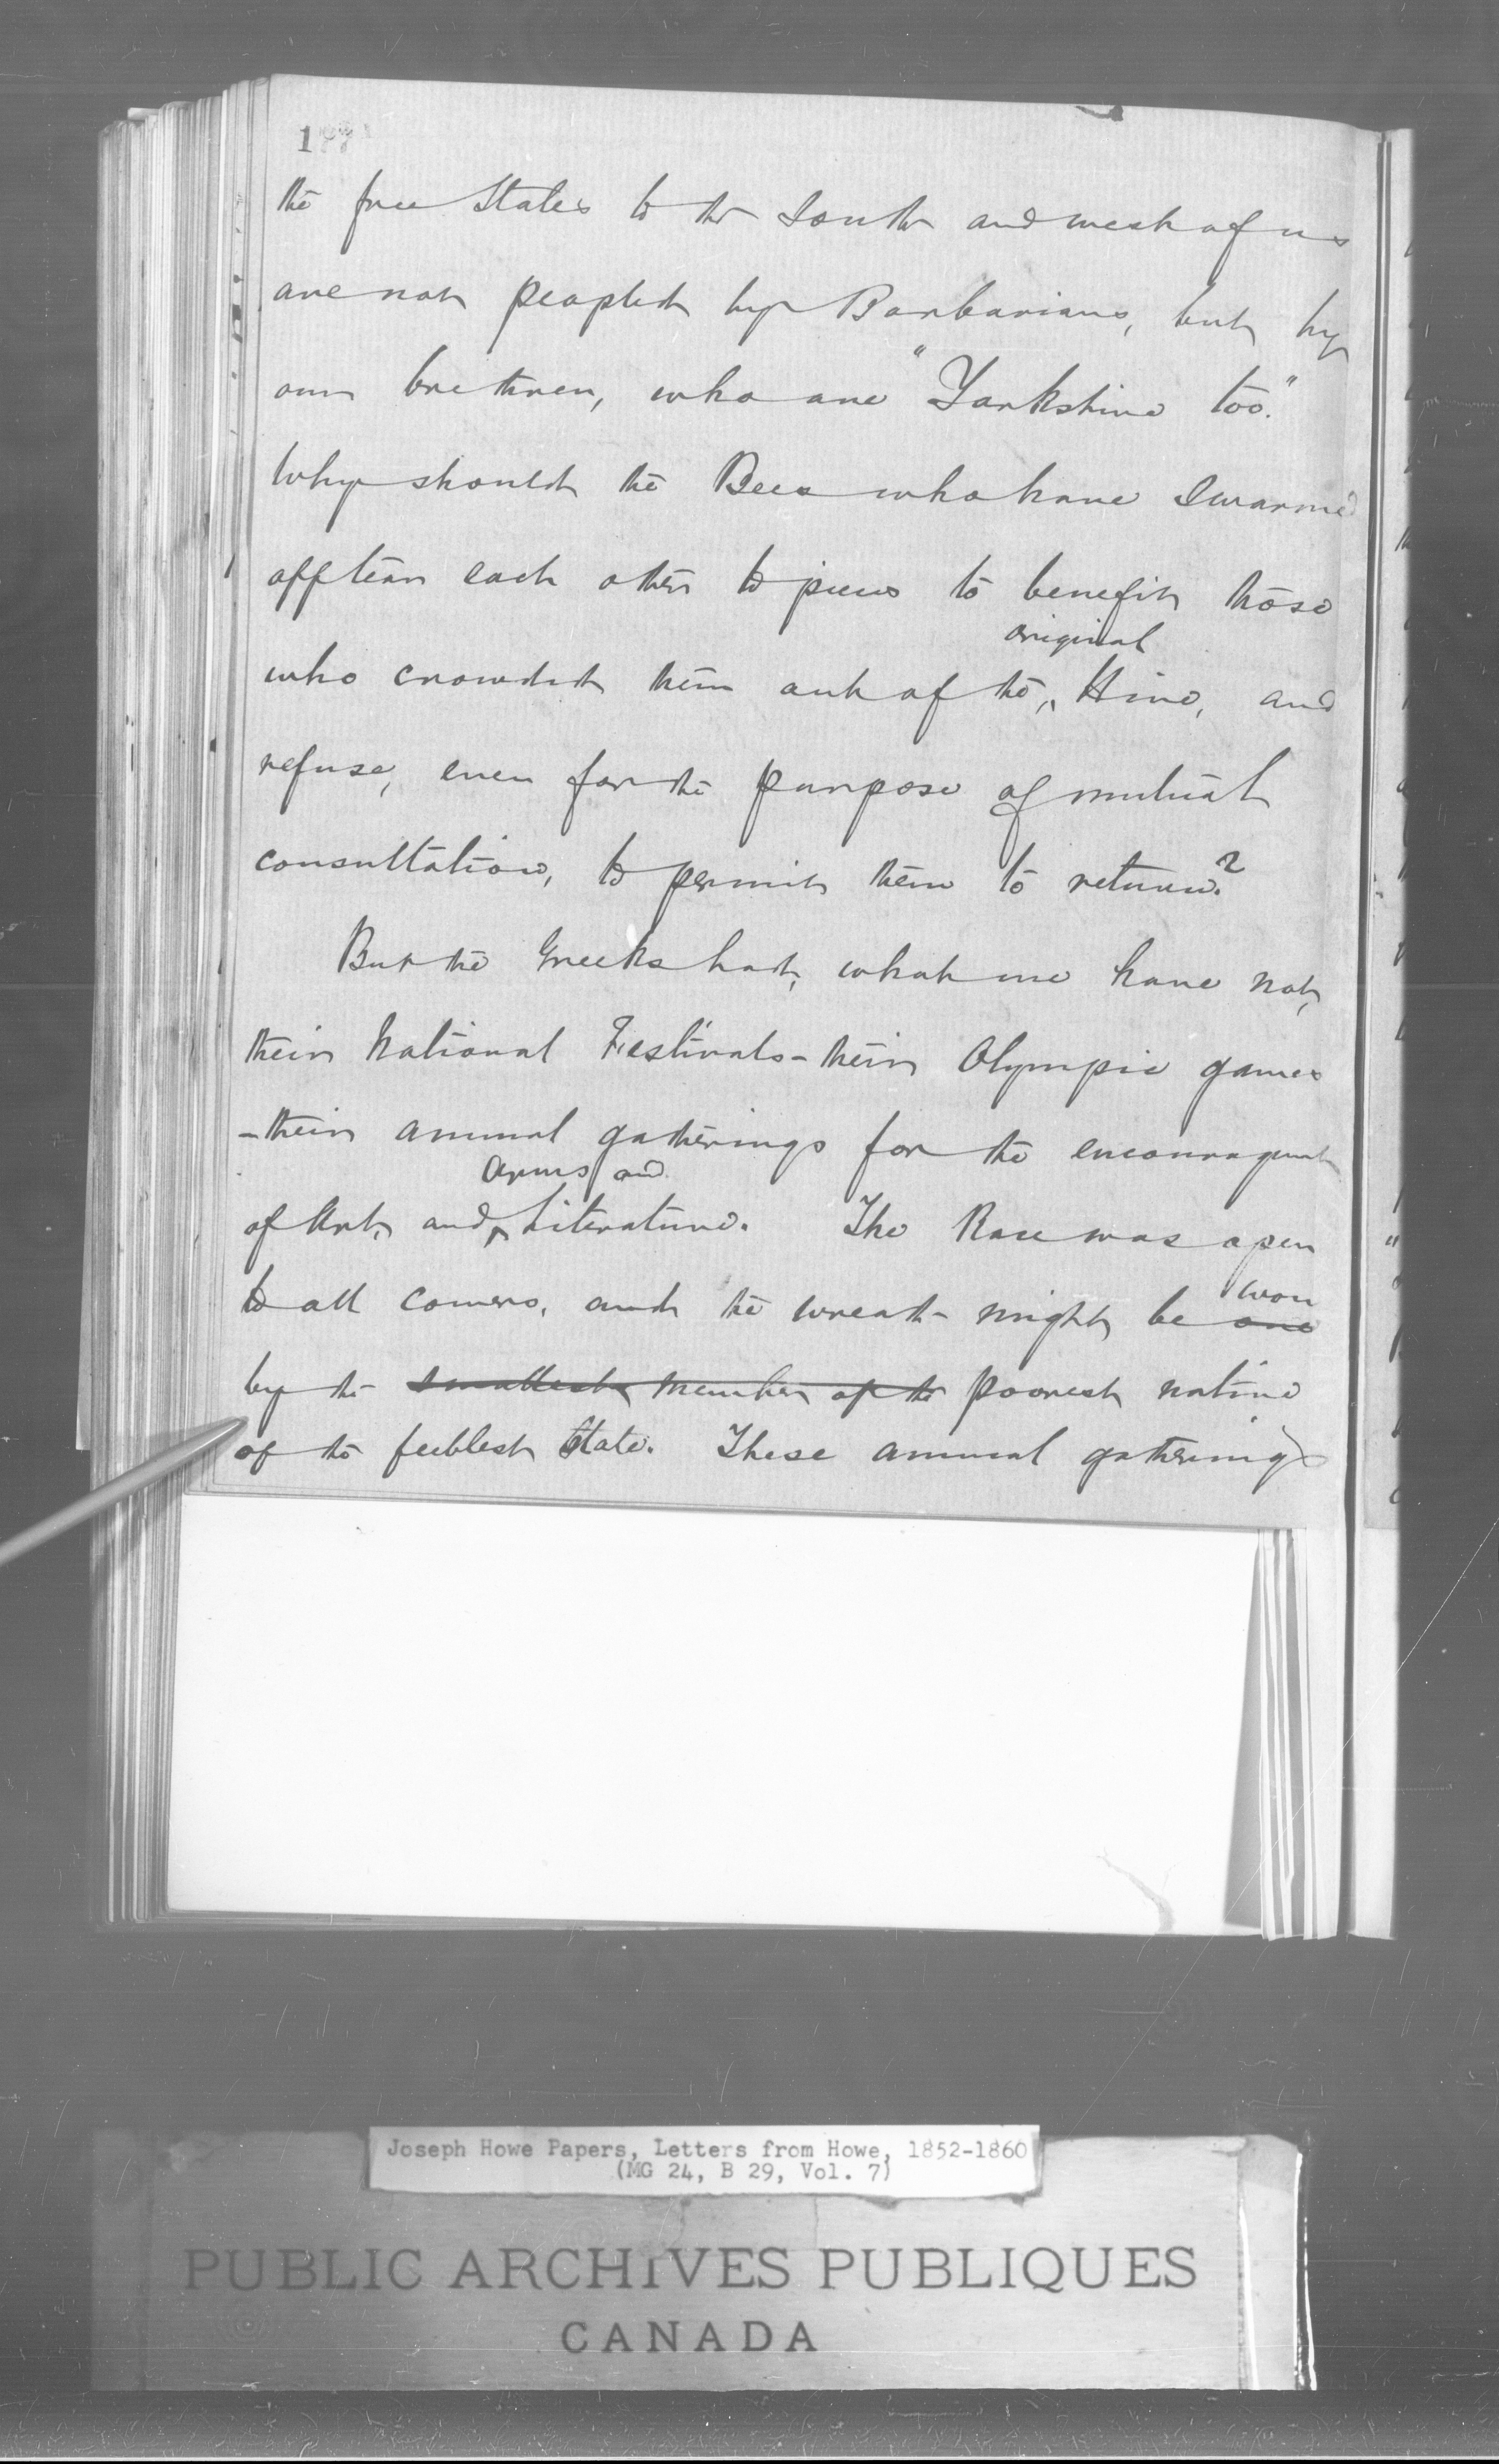 1
the free States to the South and west of us
are not peopled by Barbarians, but by
our brethren, who are "Yorkshire too."
Why should the Bees who have swarmed
off tear each other to pieces to benefit those
original
who crowded them out of the ^ Hive, and
refuse, even for the purpose of mutual
consultation, to permit them to return?
But the Greeks had, what we have not,
their National Festivals - their Olympic games
- their annual gatherings for the encouragement
Arms and
of Art, and ^ Literature. The Race was open
won
to all comers, and the wreath might be one
by the smallest member of the poorest native
of the feeblest State. These annual gatherings
Joseph Howe Papers, Letters from Howe, 1852-1860
(MG 24, B 29, Vol. 7)
PUBLIC ARCHIVES PUBLIQUES
CANADA